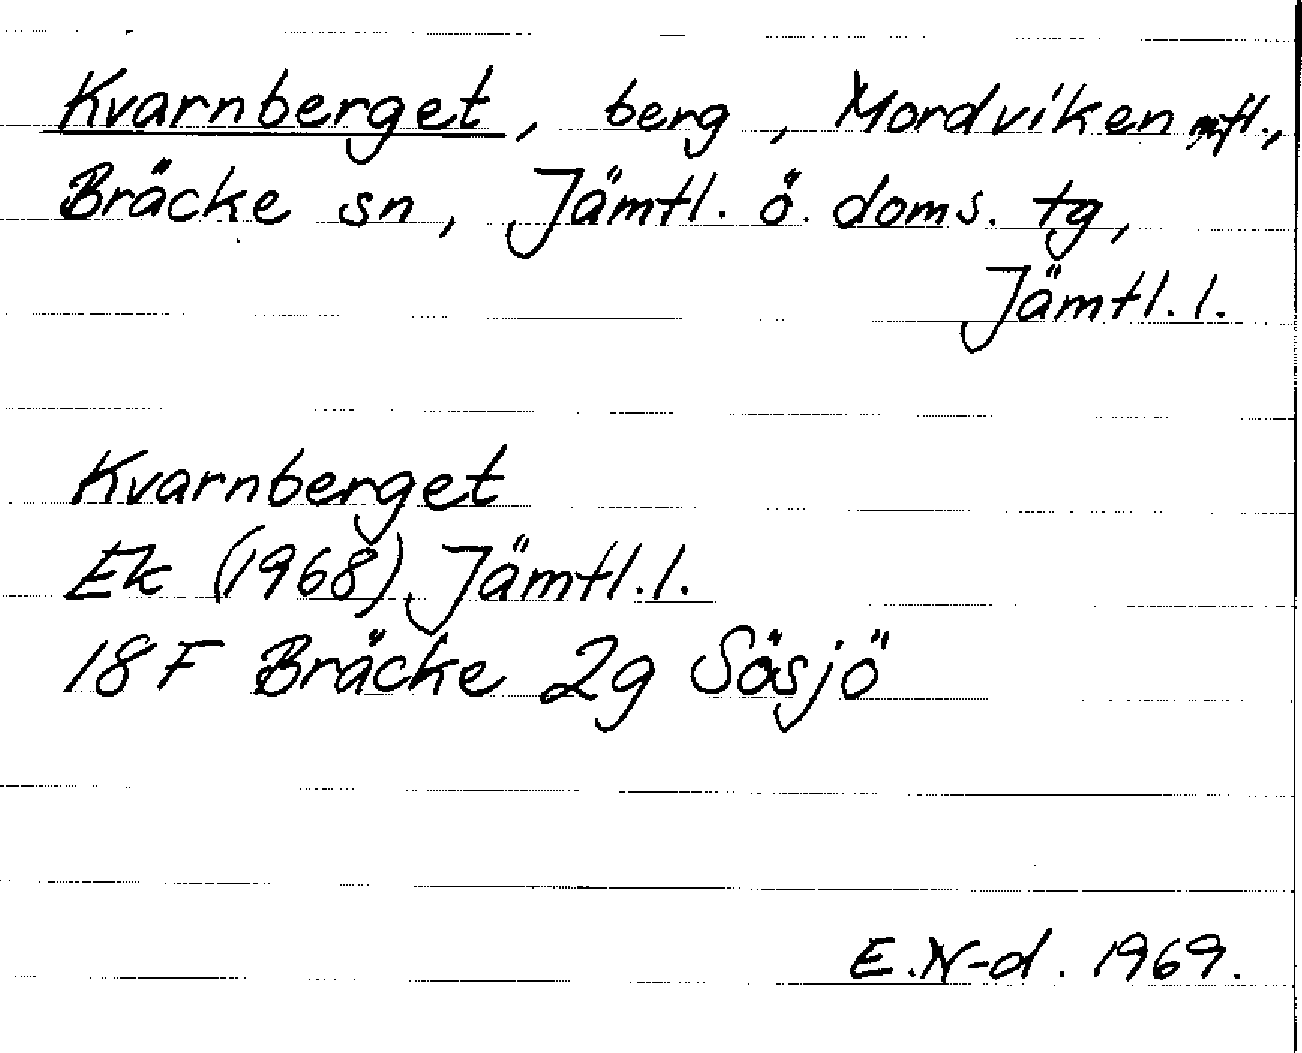 Kvarnberget, berg, Mordviken mfl.,
Bräcke sn, Jämtl. ö. doms. tg,
Jämtl. l.
Kvarnberget
Ek (1968) Jämtl. l.
18 F Bräcke 2g Sösjö
E. N-d. 1969.